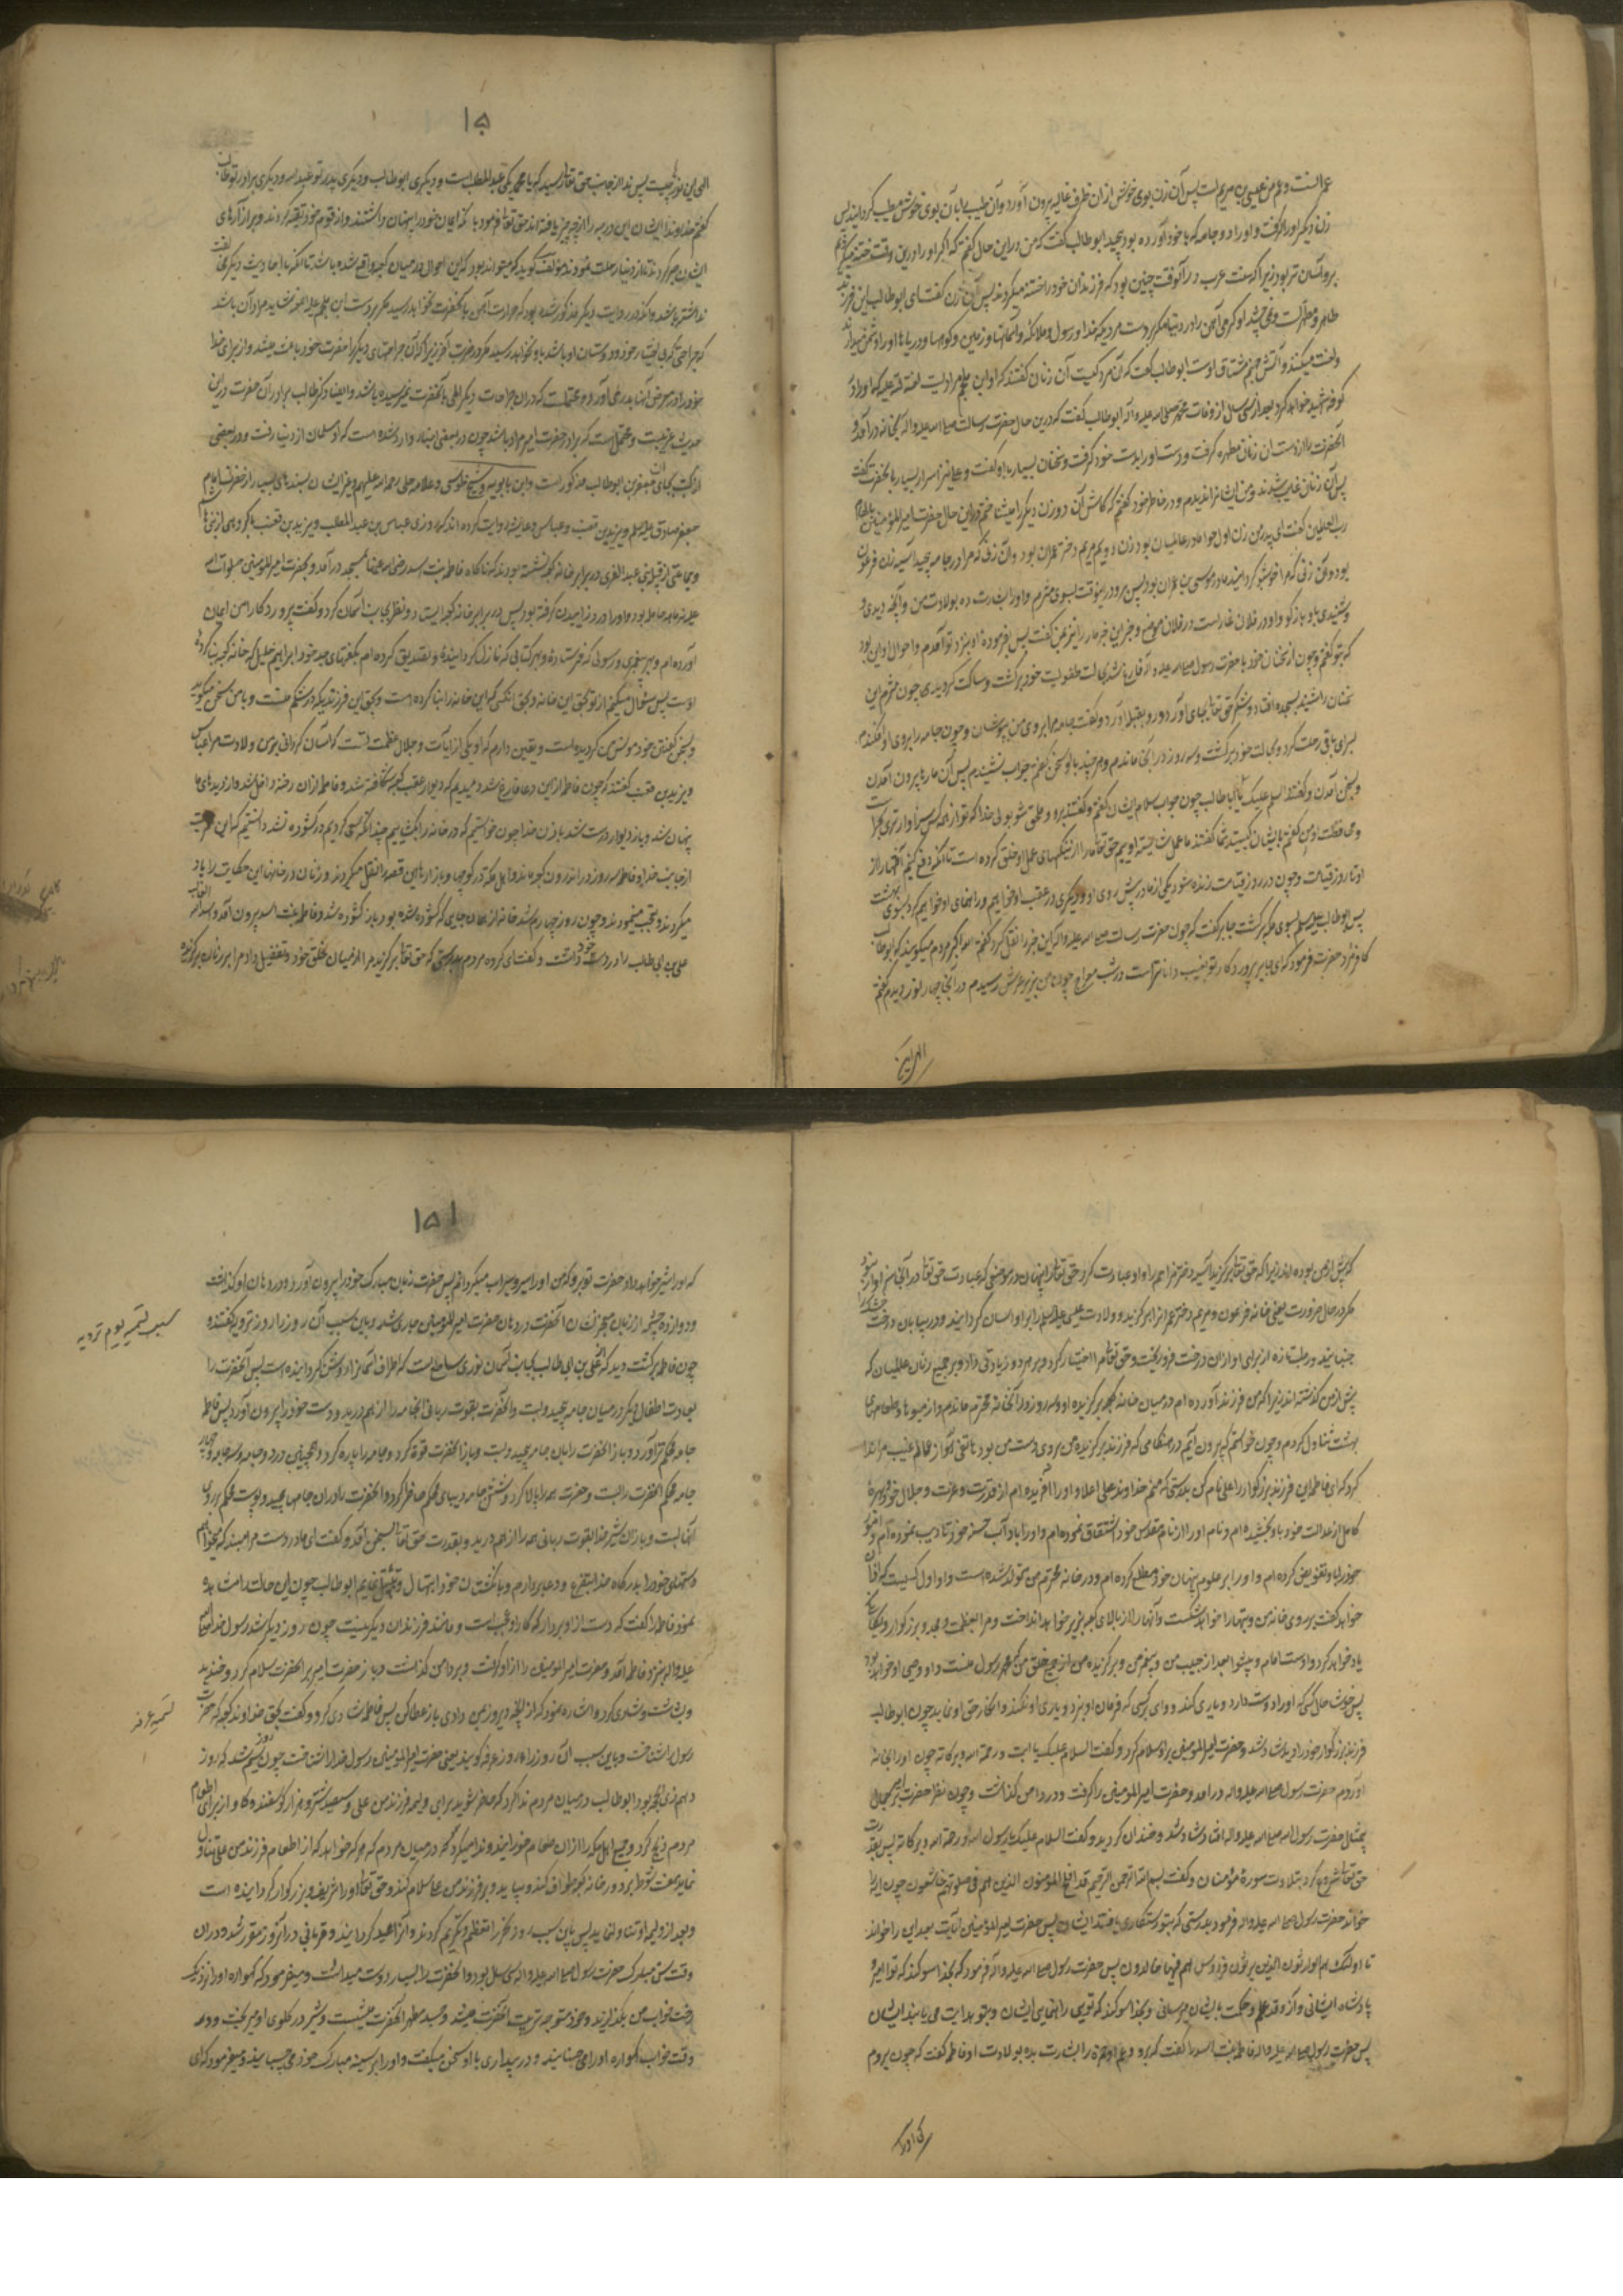 عمرانست و عم من عیسی بن مریم است پس آن زن بوی خوش از ان ظرف غالیه بیرون آورد و آن طیب را بان بوی خوش مطیب گردانید پس
زن دیگر او را گرفت و او را در جامه که با خود آورده بود پیچید ابو طالب گفت که من در این حال گفتم که اگر او را در این وقت ختنه میکردیم
بر او آسان تر بود زیرا که سنت عرب در آنوقت چنین بود که فرزندان خود را ختنه میکردند پس آن زن گفت ای ابو طالب این فرزند
طاهر و مطهر است و نمی چشد او گرمی آهن را در دنیا مگر بر دست مردیکه خدا و رسول و ملائکه و آسمانها و زمین و کوهها و دریاها او را دشمن میدارند
و لعنت میکنند و آتش جهنم مشتاق اوست ابو طالب گفت که آن مرد کیست آن زنان گفتند که او ابن ملجم مرادیست لعنة الله علیه که او را در
کوفه شهید خواهد کرد بعد از سی سال از وفات محمد صلی الله علیه و آله ابو طالب گفت که در این حال حضرت رسالت صلی الله علیه و آله بخانه در آمد و
آنحضرت را از دست ان زنان مطهره گرفت و دست او را بدست خود گرفت و سخنان بسیار با او گفت و علی نیز اسرار بسیار با آنحضرت گفت
پس آن زنان غایب شدند و من ایشانرا ندیدم و در خاطر خود گفتم که کاش آن دو زن دیگر را میشناختم در این حال حضرت امیر المؤمنین بالهام
رب العالمین گفت ای پدر من زن اول حوا مادر عالمیان بود و زن دویم مریم دختر عمران بود و آن زنی که مرا در جامه پیچید آسیه زن فرعون
بود و آن زنی که مرا خوشبو گردانید مادر موسی بن عمران بود پس برو در اینوقت بسوی مثرم و او را بشارت ده بولادت من و آنچه دیدی و
شنیدی باو باز گو و او در فلان غار است در فلان موضع
که بتو گفتم و چون از سخنان خود با حضرت رسول صلی الله علیه و آله فارغ شد بحالت طفولیت خود برگشت و ساکت گردید چون مثرم این
سخنان را شنید بسجده افتاد و شکر حق تعالی بجای آورد و رو بقبله آورد و گفت جامه مرا بروی من بپوشان و چون جامه را بروی او افکندم
بسرای باقی رحلت کرد و بحالت خود برگشت و سه روز در آنجا ماندم و هر چند با او سخن گفتم جواب نشنیدم پس آن مارها بیرون آمدن
و بسخن آمدن و گفتند السلام علیک یا ابا طالب چون جواب سلام ایشان گفتم گفتند برو و ملحق شو بولی خدا که تو از همه کس سزاوارتری بحراست
و محافظت او من گفتم بایشان کیستید شما گفتند ما عمل شایسته اوییم حق تعالی ما را از نیکیهای عمل او خلق کرده است تا آنکه دفع کنیم آفتها را از
او تا روز قیامت و چون در روز قیامت زنده شود یکی از ما در پیش روی او و دیگری در عقب او خواهیم بود و راهنمای او خواهیم کرد بسوی بهشت
پس ابو طالب علیه السلام بسوی مکه برگشت جابر گفت که چون حضرت رسالت صلی الله علیه و آله این خبر را نقل کرد گفتم الله اکبر مردم میگویند که ابو طالب
کافر مرد حضرت فرمود که ای جابر پروردگار تو بغیب داناتر است در شب معراج چون من بزیر عرش رسیدم در آنجا چهار نور دیدم گفتم
الهی این
۱۵
الهی این نورها چیست پس ندا از جانب حق تعالی رسید که یا محمد یکی عبدالمطلب است و دیگری ابو طالب و دیگری پدر تو عبدالله و دیگری برادر تو طالب
گفتم خداوندا ایشان این درجه را از چه چیز یافته اند حق تعالی فرمود باینکه ایمان خود را پنهان داشتند و از قوم خود تقیه کردند و بر آزارهای
ایشان صبر کردند تا از دنیا رحلت نمودند مؤلف گوید که میتواند بود که این احوال در میان کعبه واقع شده باشد تا آنکه با احادیث دیگر منافات
نداشته باشد و آنکه در روایت دیگر مذکور شده بود که حرارت آهن بآنحضرت نخواهد رسید مگر بر دست ابن ملجم علیه اللعنه شاید مراد آن باشد
حدیث غریبست و محتمل است که برادر حضرت امیر مراد باشد چون در بعضی اخبار وارد شده است که او مسلمان از دنیا رفت و در بعضی
از کتب بجای آن جعفر بن ابو طالب مذکور است و ابن بابویه و شیخ طوسی و علامه حلی رحمة الله علیهم و غیر ایشان بسندهای بسیار از حضرت امام
جعفر صادق علیه السلام و یزید بن قعنب و عباس و عایشه روایت کرده اند که روزی عباس بن عبدالمطلب و یزید بن قعنب با گروهی از بنی هاشم
و جماعتی از قبیله بنی عبدالعزی در برابر خانه کعبه نشسته بودند که ناگاه فاطمه بنت اسد رضی الله عنها بمسجد در آمد و بحضرت امیر المؤمنین صلوات الله
علیه نه ماهه حامله بود و او را درد زاییدن گرفته بود پس در برابر خانه کعبه ایستاد و نظر بجانب آسمان کرد و گفت پروردگارا من ایمان
آورده ام و بهر پیغمبری و رسولی که فرستادۀ و بهر کتابی که نازل گردانیدۀ و تصدیق کرده ام بگفتهای جدم ابراهیم خلیل که خانه کعبه بنا کردۀ
اوست پس سؤال میکنم از تو بحق این خانه و بحق انکسی که این خانه را بنا کرده است و بحق این فرزندیکه در شکم منست و با من سخن میگوید
و بسخن گفتن خود مونس من گردیده است و یقین دارم که او یکی از آیات و جلال و عظمت تست که آسان گردانی بر من ولادت مرا عباس
و یزید بن قعنب گفتند که چون فاطمه از این دعا فارغ شد دیدیم که دیوار عقب کعبه شکافته شد و فاطمه از ان رخنه داخل شد و از دیدهای ما
پنهان شد و باز دیوار درست شد باذن خدا چون خواستیم که در خانه را بگشاییم چندانکه سعی کردیم در گشوده نشد دانستیم که این
از جانب خدا و فاطمه سه روز در اندرون کعبه ماند و اهل مکه در کوچها و بازارها این قصه را نقل میکردند و زنان در خانها این حکایت را یاد
میکردند و تعجب مینمودند و چون روز چهارم شد خانه از همان جایی که گشوده شده بود باز گشوده شد و فاطمه بنت اسد بیرون آمد و اسد الله الغالب
علی بن ابی طالب را در دست خود داشت و گفت ای گروه مردم بدرستی که حق تعالی برگزید مرا از میان خلق خود و تفضیل داد مرا بر زنان برگزیده
که پیش از من بوده اند زیرا که حق تعالی برگزید آسیه دختر مزاحم را و او عبادت کرد حق تعالی را پنهان در موضعی که عبادت حق تعالی در آنجا سزاوار نبود
مگر در حال ضرورت یعنی خانه فرعون و مریم دختر عمران را برگزید و ولادت عیسی علیه السلام را بر او اسان گردانید و در بیابان درخت خشک را
جنبانید و رطب تازه از برای او از ان درخت فرو ریخت و حق تعالی مرا اختیار کرد و بر هر دو زیادتی داد و بر جمیع زنان عالمیان که
پیش از من گذشته اند زیرا که من فرزند آورده ام در میان خانه برگزیده او و سه روز در آنخانه محترم ماندم و از میوها و طعامهای
بهشت تناول کردم و چون خواستم که بیرون آیم در هنگامی که فرزند برگزیده من بر روی دست من بود هاتفی آواز از عالم غیب مرا ندا
کرد که ای فاطمه این فرزند بزرگوار را علی نام کن بدرستی که منم خداوند علی اعلا و او را آفریده ام از قدرت و عزت و جلال خود و بهرۀ
کامل از عدالت خود باو بخشیده ام و نام او را از نام مقدس خود اشتقاق نموده ام و او را بآداب حسنه خود تادیب نموده ام و امر
خود را باو تفویض کرده ام و او را بر علوم پنهان خود مطلع کرده ام و در خانه محترم من متولد شده است و او اول کسیست که اذان
خواهد گفت بر روی خانه من و بتها را خواهد شکست و آنها را از بالای کعبه بزیر خواهد انداخت و مرا بعظمت و مجد و بزرگواری و یگانگی
یاد خواهد کرد و اوست امام و پیشوا بعد از حبیب من و پیغمبر من و برگزیده من از جمیع خلق من محمد رسول منست و او وصی او خواهد بود
پس خوشا حال کسی که او را دوست دارد و یاری کند و وای بر کسی که فرمان او نبرد و یاری او نکند و انکار حق او نماید چون ابو طالب
فرزند بزرگوار خود را دید شاد شد و حضرت امیر المؤمنین بر او سلام کرد و گفت السلام علیک یا ابت و رحمة الله و برکاته چون او را بخانه
آوردم حضرت رسول صلی الله علیه و آله در امد و حضرت امیر المؤمنین را گرفت و در دامن گذاشت و چون نظر حضرت امیر بر جمال
بیمثال حضرت رسول الله صلی الله علیه و آله افتاد شاد شد و خندان گردید و گفت السلام علیک یا رسول الله و رحمة الله و برکاته پس بقدرت
حق تعالی شروع کرد بتلاوت سورۀ مؤمنان و گفت بسم الله الرحمن الرحیم قد افلح المؤمنون الذین هم فی صلوتهم خاشعون چون این را
خواند حضرت رسول صلی الله علیه و آله فرمود بدرستی که بتو رستگاری یافتند ایشان پس حضرت امیر المؤمنین آیات بعد این را خواند
تا اولئک هم الوارثون الذین یرثون فردوس هم فیها خالدون پس حضرت رسول صلی الله علیه و آله فرمود که بخدا سوگند که تو امیر و
پادشاه ایشانی و آزوقه علم و حکمت بایشان میرسانی و بخدا سوگند که تویی راهنمای ایشان و بتو هدایت می یابند ایشان
پس حضرت رسول صلی الله علیه و آله فاطمه بنت اسد را گفت که برو و عم او حمزه را بشارت بده بولادت او فاطمه گفت که چون بروم
۱۵۱
که او را شیر خواهد داد حضرت تو برو که من او را سیر و سیراب میگردانم پس حضرت زبان مبارک خود را بیرون آورد و در دهان او گذاشت
و دوازده چشمه از زبان معجز نشان آنحضرت در دهان حضرت امیر المؤمنین جاری شد و باین سبب آن روز را روز ترویه گفتند و
چون فاطمه برگشت دید که از علی بن ابی طالب بجانب آسمان نوری ساطع است که اطراف آسمانرا روشن گردانیده است پس آنحضرت را
بعادت اطفال دیگر در میان جامه پیچید و بست و آنحضرت بقوت ربانی آنجامه را از هم درید و دست خود را بیرون آورد پس فاطمه
جامه محکم تر آورد و باز آنحضرت را بان جامه پیچید و بست و باز آنحضرت قوة کرد و جامه را پاره کرد و همچنین در دو جامه و سه جامه و چهار
جامه محکم آنحضرت را بست و حضرت همه را پاره کرد و شش جامه دیبای محکم حاضر کرد و آنحضرت را در ان جامها پیچید و پوست محکم بر روی
آنها بست و باز ان شیر خدا بقوت ربانی همه را از هم درید و بقدرت حق تعالی بسخن آمد و گفت ای مادر دست مرا مبند که میخواهم
دستهای خود را بدرگاه خدا بتضرع و دعا بردارم و بانگشتان خود ابتهال و تملق نمایم ابو طالب چون این حالت را مشاهده
نمود فاطمه را گفت که دست از او بردار که کار او عجیب است و مانند فرزندان دیگر نیست چون روز دیگر شد رسول خدا صلی الله
علیه و آله بنزد فاطمه آمد و حضرت امیر المؤمنین را از او گرفت و بر دامن گذاشت و باز حضرت امیر بر آنحضرت سلام کرد و خندید
و بشاشت و شادی کرد و اشاره نمود که از آنچه دیروز بمن دادی باز عطا کن پس فاطمه شادی کرد و گفت بحق خداوند کعبه که حضرت
رسول را شناخت و باین سبب آن روز را روز عرفه گویند یعنی حضرت امیر المؤمنین رسول خدا را شناخت چون روز سیم شد که روز
دهم ذی الحجه بود ابو طالب در میان مردم ندا کرد که حاضر شوید برای ولیمه فرزند من علی و سیصد شتر و هزار گوسفند و گاو از برای اطعام
مردم ذبح کرد و جمیع اهل مکه را از ان طعام خورانید و ندا میکرد که در میان مردم که هر که خواهد که از اطعام فرزند من علی تناول
نماید هفت شوط بر دور خانه کعبه طواف کند و بیاید و بر فرزند من علی سلام کند و حق تعالی او را شریف و بزرگوار گردانیده است
و بعد از ولیمه او تناول نماید پس باین سبب روز نحر را تعظیم و تکریم کردند و آنرا عید گردانیدند و قربانی در آنروز مقرر شد و در ان
وقت سن مبارک حضرت رسول صلی الله علیه و آله سی سال بود و آنحضرت را بسیار دوست میداشت و میفرمود که گهواره او را نزدیک
رخت خواب من بگذارید و خود متوجه تربیت آنحضرت میشد و جسد مطهر آنحضرت میشست و شیر در گلوی او میریخت و در
وقت خواب گهواره او را می جنبانید و در بیداری با او سخن میگفت و او را بر سینه مبارک خود می چسبانید و میفرمود که ای
سبب تسمیه یوم ترویه
تسمیه عرفه